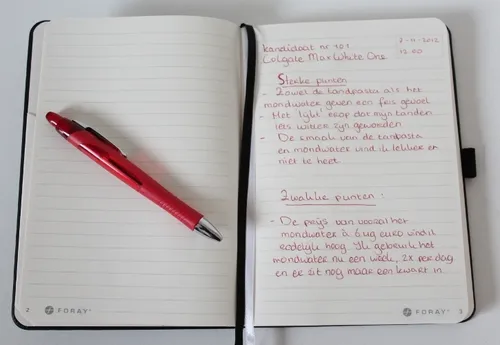 Kandidaat nr 101
2-11-2012
Colgate Max White One
12.00
Sterke punten
- Zowel de tandpasta als het
mondwater geven een fris gevoel
- Het lijkt erop dat mijn tanden
iets witter zijn geworden
- De smaak van de tandpasta
en mondwater vind ik lekker en
niet te heet
Zwakke punten:
- De prijs van vooral het
mondwater à 6,49 euro vind ik
redelijk hoog. Ik gebruik het
mondwater nu een week, 2x per dag
en er zit nog maar een kwart in
2 FORAY
FORAY 3